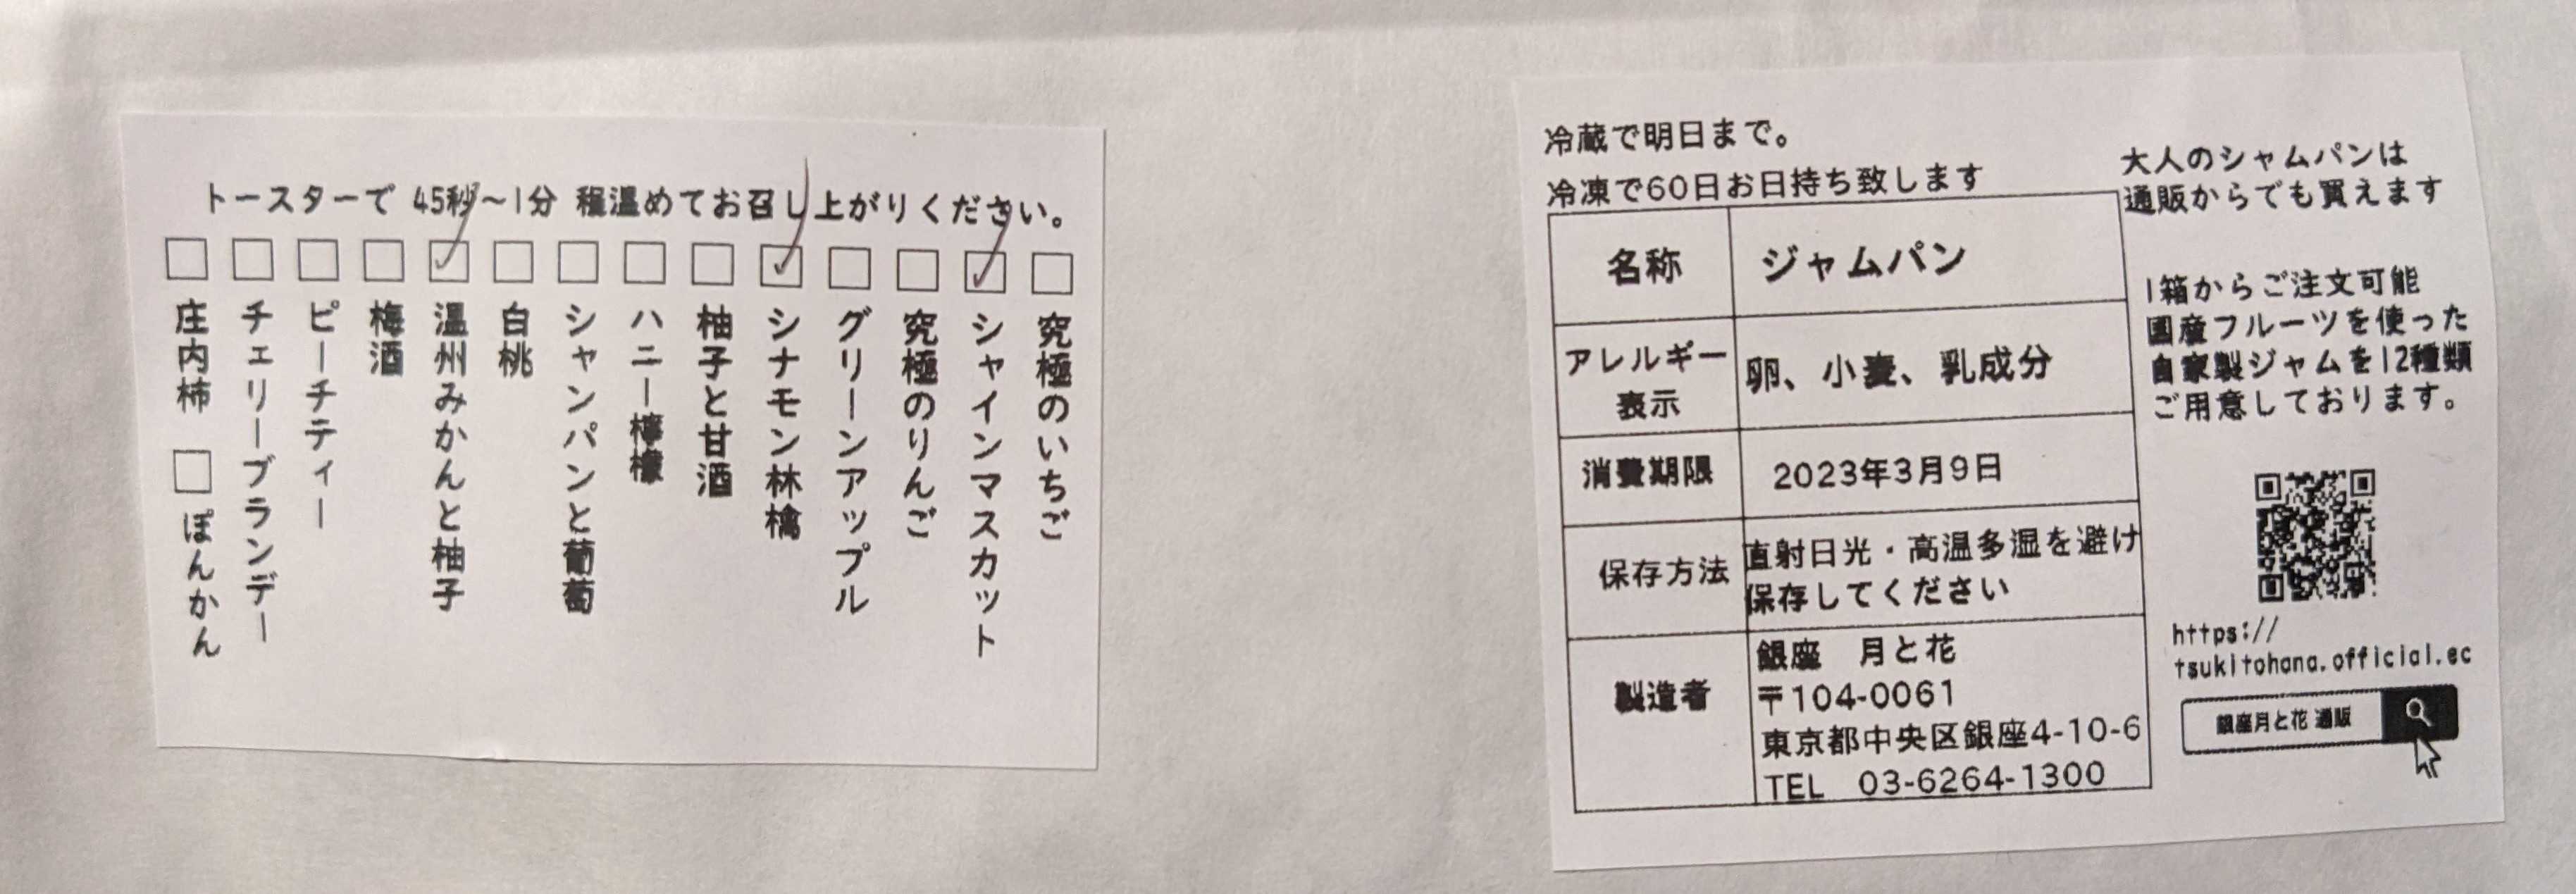 トースターで 45秒～1分 程温めてお召し上がりください。
□究極のいちご
☑シャインマスカット
□究極のりんご
□グリーンアップル
☑シナモン林檎
□柚子と甘酒
□ハニー檸檬
□シャンパンと葡萄
□白桃
☑温州みかんと柚子
□梅酒
□ピーチティー
□チェリーブランデー
□庄内柿 □ぽんかん
冷蔵で明日まで。
冷凍で60日お日持ち致します
名称 ジャムパン
アレルギー
表示
卵、小麦、乳成分
消費期限 2023年3月9日
保存方法
直射日光・高温多湿を避け
保存してください
製造者
銀座 月と花
〒104-0061
東京都中央区銀座4-10-6
TEL 03-6264-1300
大人のジャムパンは
通販からでも買えます
1箱からご注文可能
國産フルーツを使った
自家製ジャムを12種類
ご用意しております。
https://
tsukitohana.official.ec
銀座月と花 通販